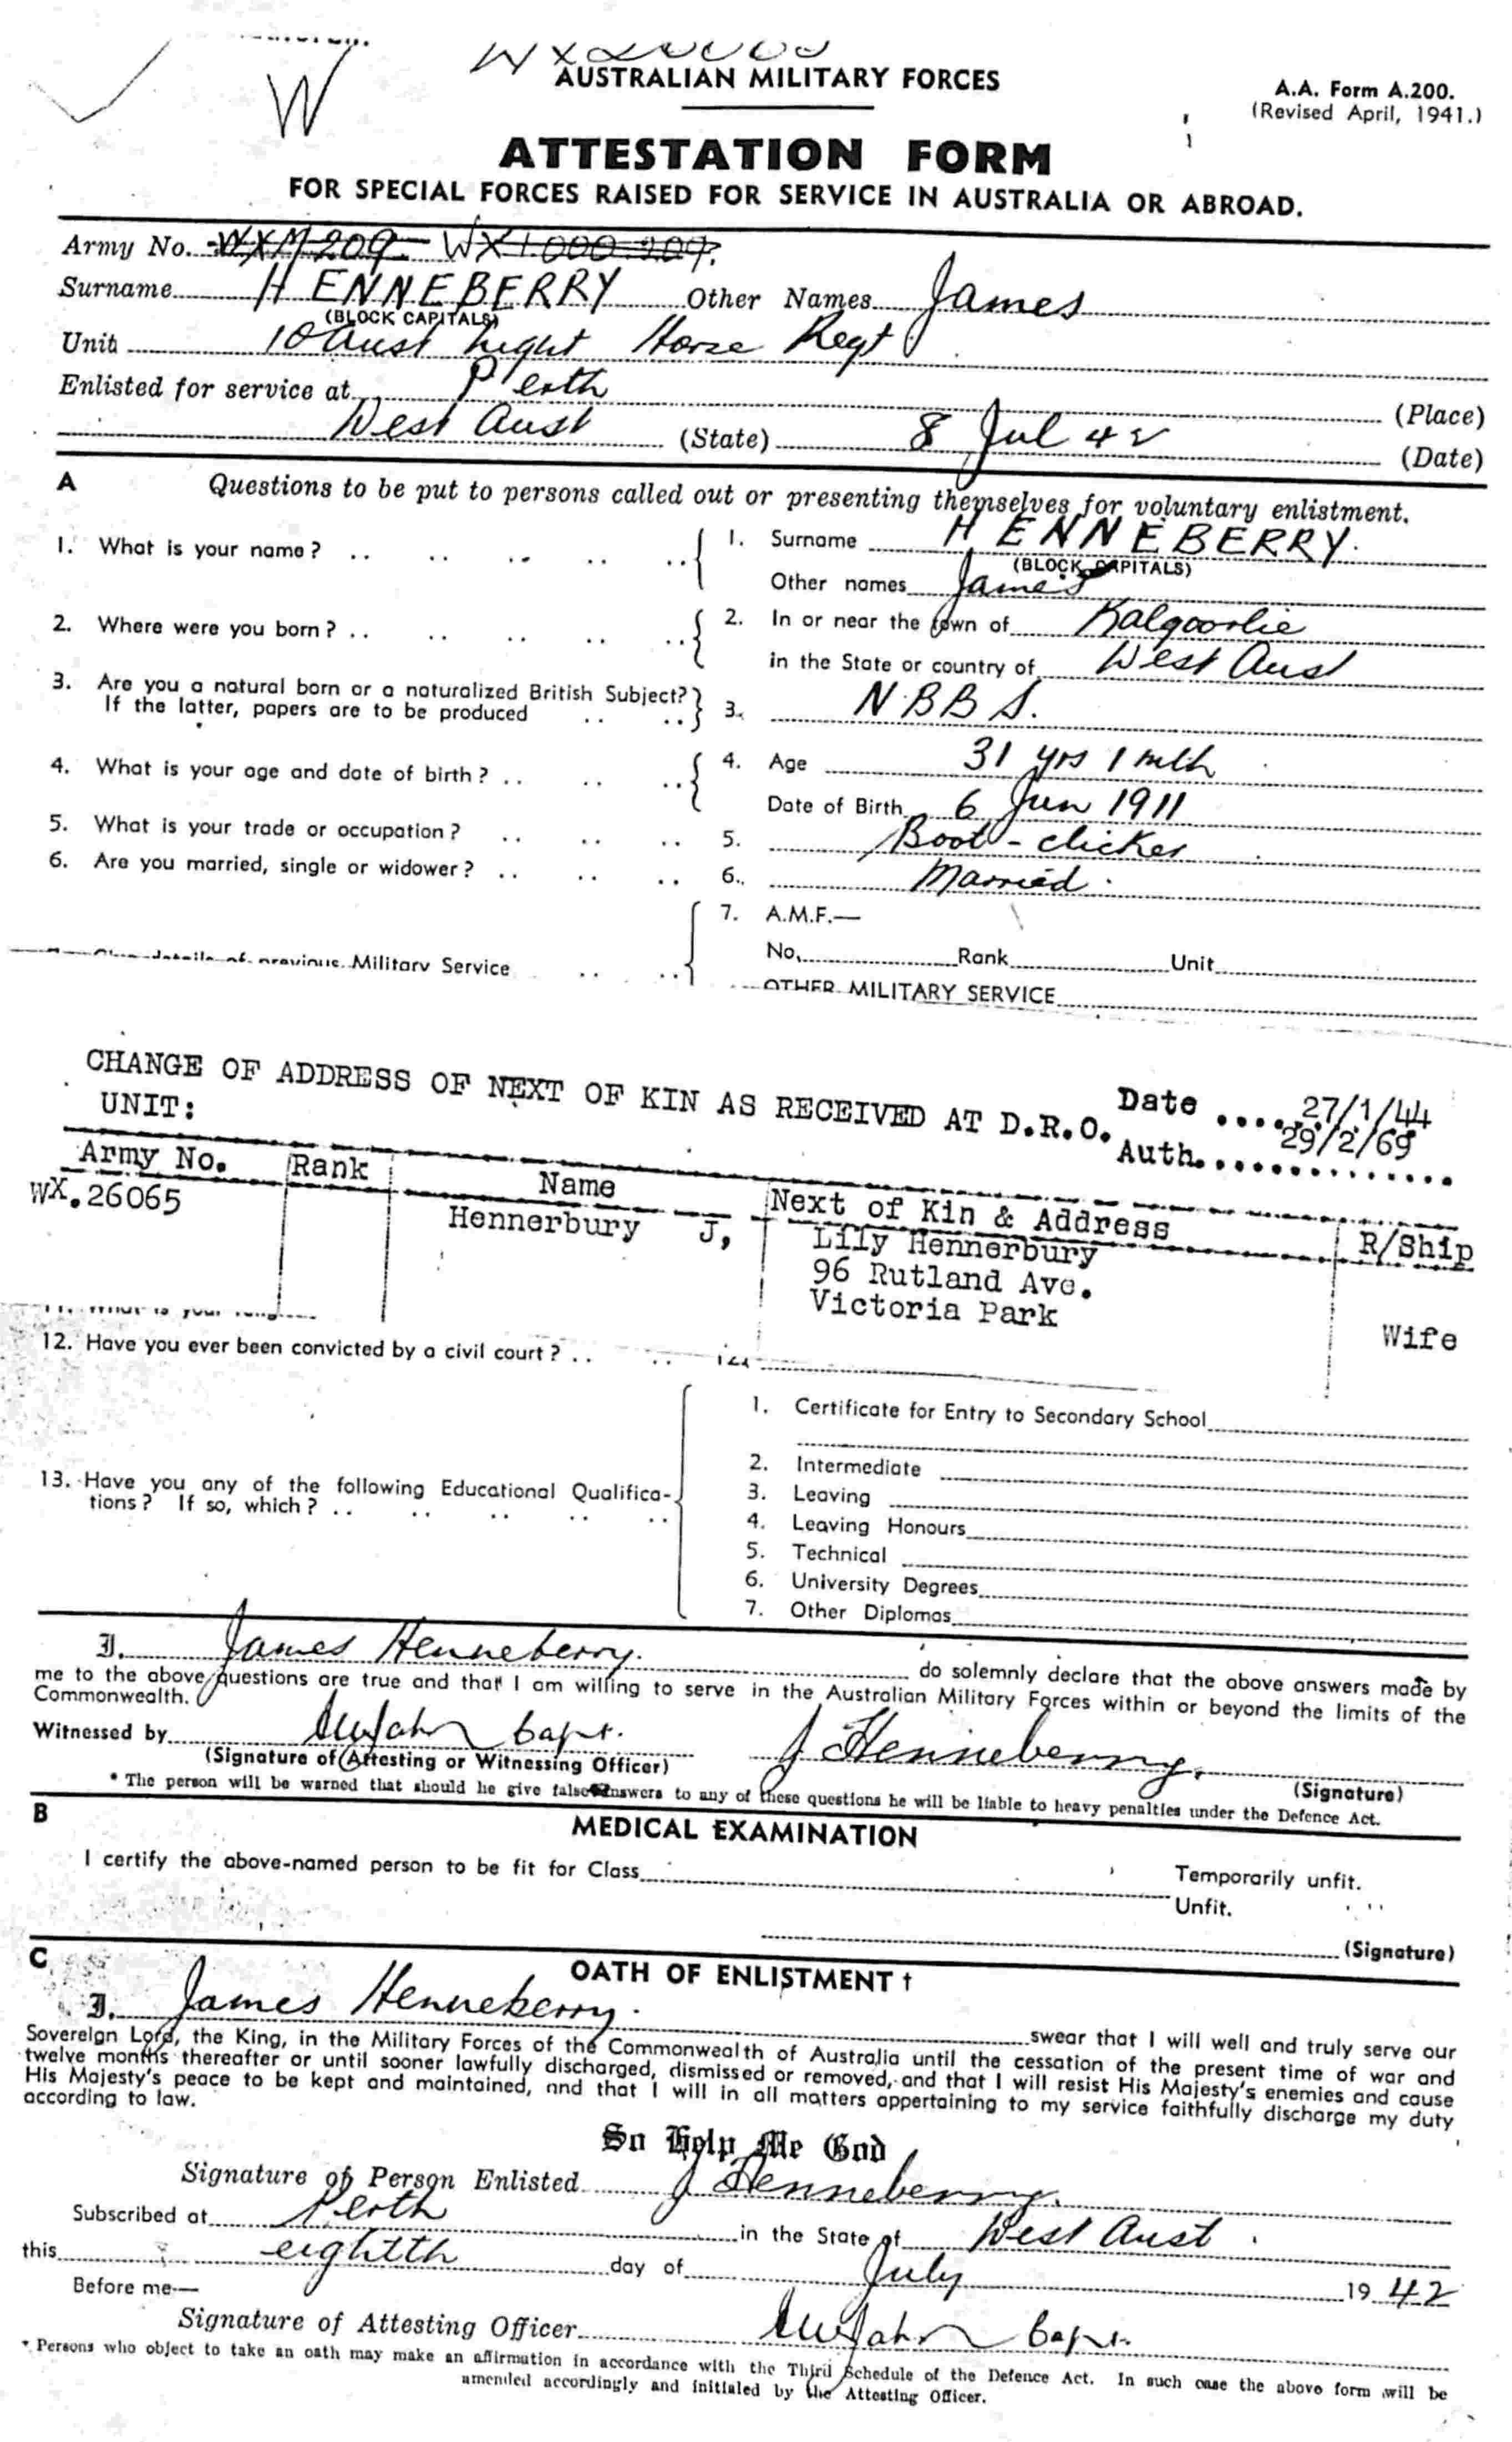 W
AUSTRALIAN MILITARY FORCES
A.A. Form A.200.
(Revised April, 1941.)
ATTESTATION FORM
FOR SPECIAL FORCES RAISED FOR SERVICE IN AUSTRALIA OR ABROAD.
Army No. WXM209 WX1000209.
Surname HENNEBERRY Other Names James
(BLOCK CAPITALS)
Unit 10 Aust Light Horse Regt
Enlisted for service at Perth (Place)
West Aust (State) 8 Jul 42 (Date)
A Questions to be put to persons called out or presenting themselves for voluntary enlistment.
1. What is your name? 1. Surname HENNEBERRY.
(BLOCK CAPITALS)
Other names James
2. Where were you born? 2. In or near the town of Kalgoorlie
in the State or country of West Aust
3. Are you a natural born or a naturalized British Subject?
If the latter, papers are to be produced 3. N.B.B.S.
4. What is your age and date of birth? 4. Age 31 yrs 1 mth
Date of Birth 6 Jun 1911
5. What is your trade or occupation? 5. Boot-clicker
6. Are you married, single or widower? 6. Married.
7. A.M.F.—
details of previous Military Service No. Rank Unit
OTHER MILITARY SERVICE
CHANGE OF ADDRESS OF NEXT OF KIN AS RECEIVED AT D.R.O. Date 27/1/44
UNIT: Auth. 29/2/69
Army No. Rank Name Next of Kin & Address R/Ship
WX.26065 Hennerbury J, Lily Hennerbury
96 Rutland Ave.
Victoria Park Wife
11. What is your
12. Have you ever been convicted by a civil court? 12.
1. Certificate for Entry to Secondary School
2. Intermediate
13. Have you any of the following Educational Qualifica-
tions? If so, which?
3. Leaving
4. Leaving Honours
5. Technical
6. University Degrees
7. Other Diplomas
I, James Henneberry. do solemnly declare that the above answers made by
me to the above questions are true and that I am willing to serve in the Australian Military Forces within or beyond the limits of the
Commonwealth.
Witnessed by Capt. J Henneberry.
(Signature of Attesting or Witnessing Officer) (Signature)
* The person will be warned that should he give false answers to any of these questions he will be liable to heavy penalties under the Defence Act.
B MEDICAL EXAMINATION
I certify the above-named person to be fit for Class Temporarily unfit.
Unfit.
(Signature)
C OATH OF ENLISTMENT †
I, James Henneberry. swear that I will well and truly serve our
Sovereign Lord, the King, in the Military Forces of the Commonwealth of Australia until the cessation of the present time of war and
twelve months thereafter or until sooner lawfully discharged, dismissed or removed, and that I will resist His Majesty's enemies and cause
His Majesty's peace to be kept and maintained, and that I will in all matters appertaining to my service faithfully discharge my duty
according to law.
So Help Me God
Signature of Person Enlisted J Henneberry.
Subscribed at Perth in the State of West Aust.
this eightth day of July 1942
Before me—
Signature of Attesting Officer Capt.
* Persons who object to take an oath may make an affirmation in accordance with the Third Schedule of the Defence Act. In such case the above form will be
amended accordingly and initialed by the Attesting Officer.